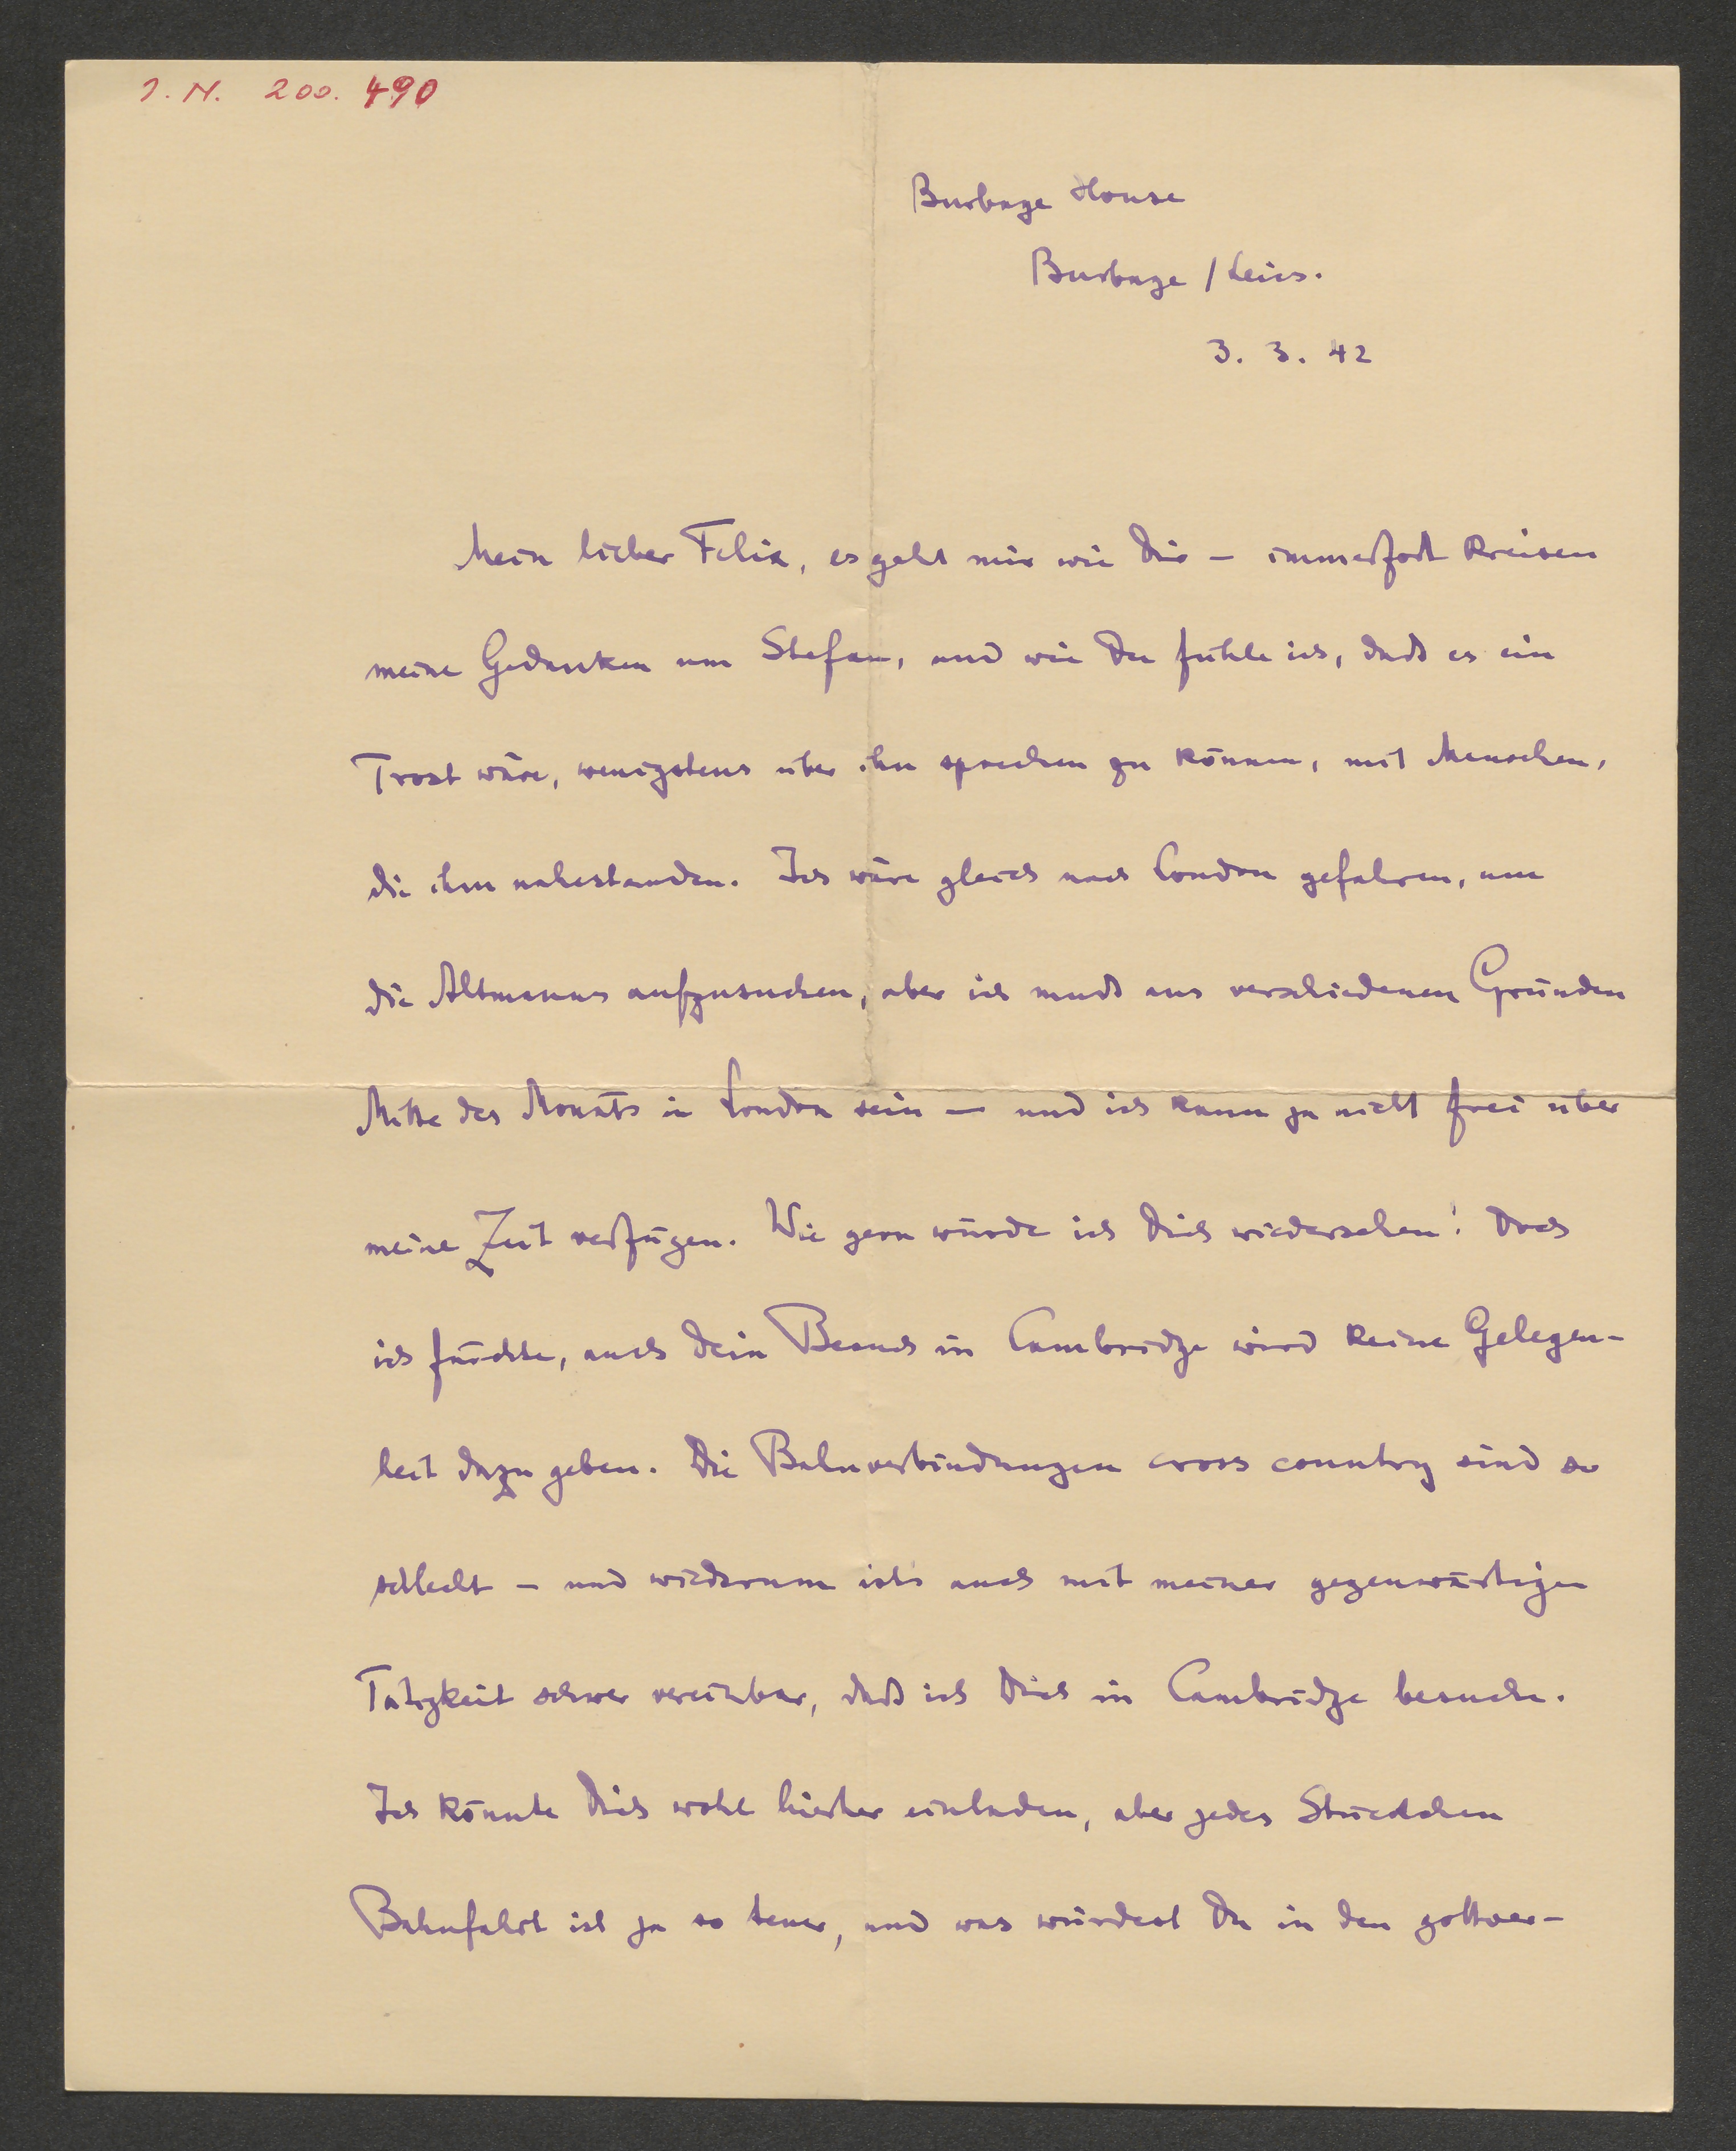 J. N. 200.490
Burbage House
Burbage / Leics.
3. 3. 42
Mein lieber Felix, es geht mir wie Dir – immerfort kreisen
meine Gedanken um Stefan, und wie Du fühle ich, daß es ein
Trost wäre, wenigstens über ihn sprechen zu können, mit Menschen,
die ihm nahestanden. Ich wäre gleich nach London gefahren, um
die Altmanns aufzusuchen, aber ich muß aus verschiedenen Gründen
Mitte des Monats in London sein – und ich kann ja nicht frei über
meine Zeit verfügen. Wie gern würde ich Dich wiedersehen! Doch
ich fürchte, auch Dein Besuch in Cambridge wird keine Gelegen-
heit dazu geben. Die Bahnverbindungen cross country sind so
schlecht – und wiederum ist's auch mit meiner gegenwärtigen
Tätigkeit schwer vereinbar, daß ich Dich in Cambridge besuche.
Ich könnte Dich wohl hierher einladen, aber jedes Stückchen
Bahnfahrt ist ja so teuer, und was würdest Du in den gottver-